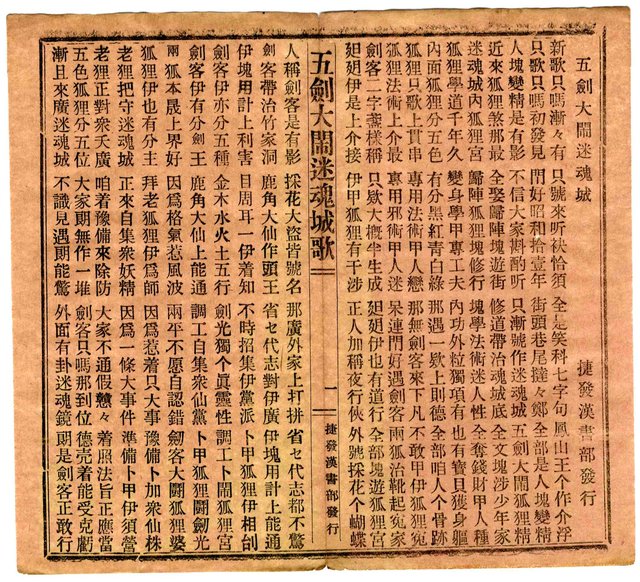 五劍大鬧迷魂城 捷發漢書部發行
新歌只嗎漸々有 只號來听袂恰須 全是笑科七字句 鳳山王个作介浮
只歌只嗎初發見 鬥好昭和拾壹年 街頭巷尾撻々鄉 全部是人塊變精
人塊變精是有影 不信大家斟酌听 只漸號作迷魂城 五劍大鬧狐狸精
近來狐狸煞那最 全娶歸陣塊遊街 修道帶治魂城底 全文塊涉少年家
迷魂城內狐狸宮 歸陣狐狸塊修行 塊學法術迷人性 全奪錢財甲人種
狐狸學道千年久 變身學甲專工夫 內功外粒獨項有 也有寶貝獲身軀
內面狐狸分五色 有分黑紅青白綠 那遇一欵上則德 全部咱人个骨跡
狐狸只歌上貫串 專用法術甲人戀 那無劍客來下凡 不敢甲伊狐狸冤
狐狸法術上介最 專用邪術甲人迷 呆運鬥好遇劍客 兩狐治靴起冤家
劍客二字樣稱 只欵大概半生成 廻廻伊也有道行 全部塊遊狐狸宮
廻廻伊是上介接 伊甲狐狸有干涉 正人加稱夜行俠 外號採花个蝴蝶
五劍大鬧迷魂城歌 一 捷發漢書部發行
人稱劍客是有影 採花大盜皆號名 那廣外家上打拼 省七代志都不驚
劍客帶治竹家洞 鹿角大仙作頭王 省七代志對伊廣 伊塊用計上能通
伊塊用計上利害 目周耳一伊着知 不時招集伊黨派 卜甲狐狸伊相刣
劍客伊亦分五種 金木水火土五行 劍光獨个眞靈性 調工卜鬧狐狸宮
劍客伊有分劍王 鹿角大仙上能通 調工自集衆仙黨 卜甲狐狸鬪劍光
兩狐本晟上界好 因爲格氣惹風波 兩平不愿自認錯 劍客大鬪狐狸婆
狐狸伊也有分主 拜老狐狸伊爲師 因爲惹着只大事 豫備卜加衆仙株
老狸把守迷魂城 正來自集衆妖精 因爲一條大事件 準備卜甲伊須營
老狸正對衆夭廣 咱着豫備來除防 大家不通假戇々 着照法旨正應當
五色狐狸分五位 大家朗無作一堆 劍客只嗎那到位 德壳着能受克虧
漸且來廣迷魂城 不識見遇朗能驚 外面有卦迷魂鏡 朗是劍客正敢行